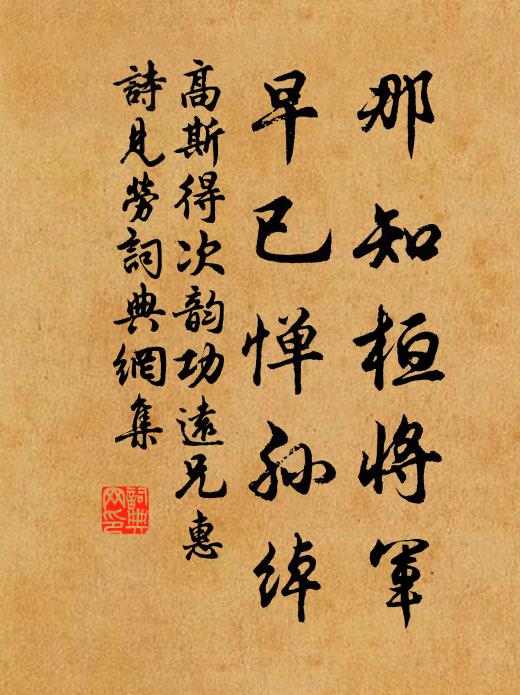 那知桓将軍
早已惮孙绰
高斯得次韵功遠兄惠
詩見勞詞典網集
詞典
网印